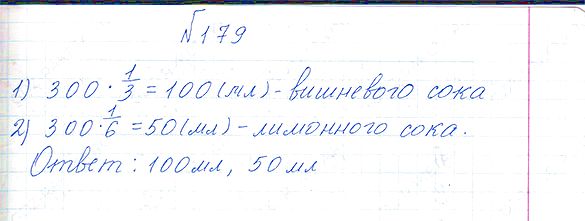 №179
1) 300 · 1/3 = 100 (мл) - вишневого сока
2) 300 · 1/6 = 50 (мл) - лимонного сока.
Ответ: 100 мл, 50 мл